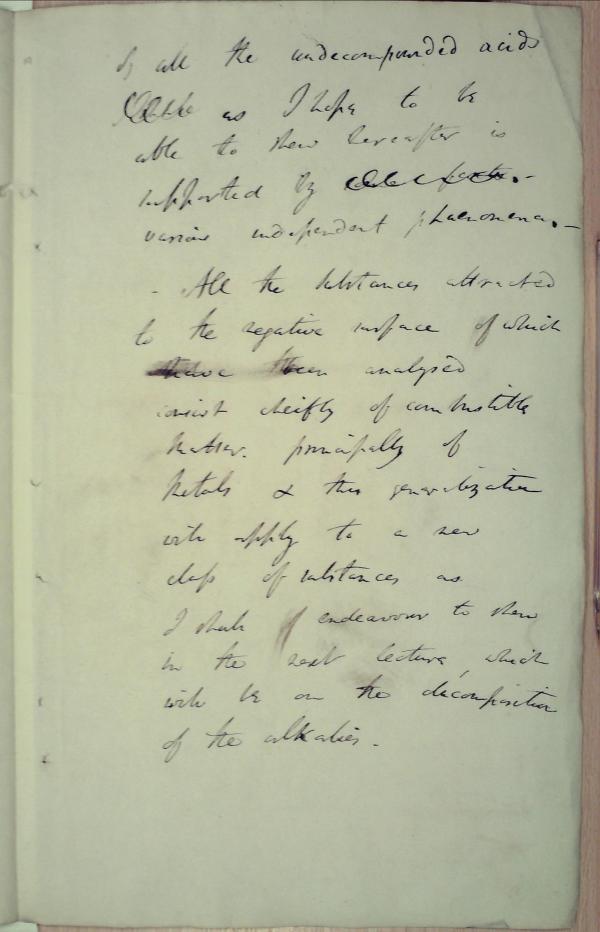 of all the undecompounded acids
as I hope to be
able to shew hereafter is
supported by facts.-
various independent phaenomena.-
- All the substances attracted
to the negative surface of which
have been analysed
consist cheifly of combustible
matter. principally of
Metals & this generalization
will apply to a new
class of substances as
I shall endeavour to shew
in the next lecture, which
will be on the decomposition
of the alkalies.